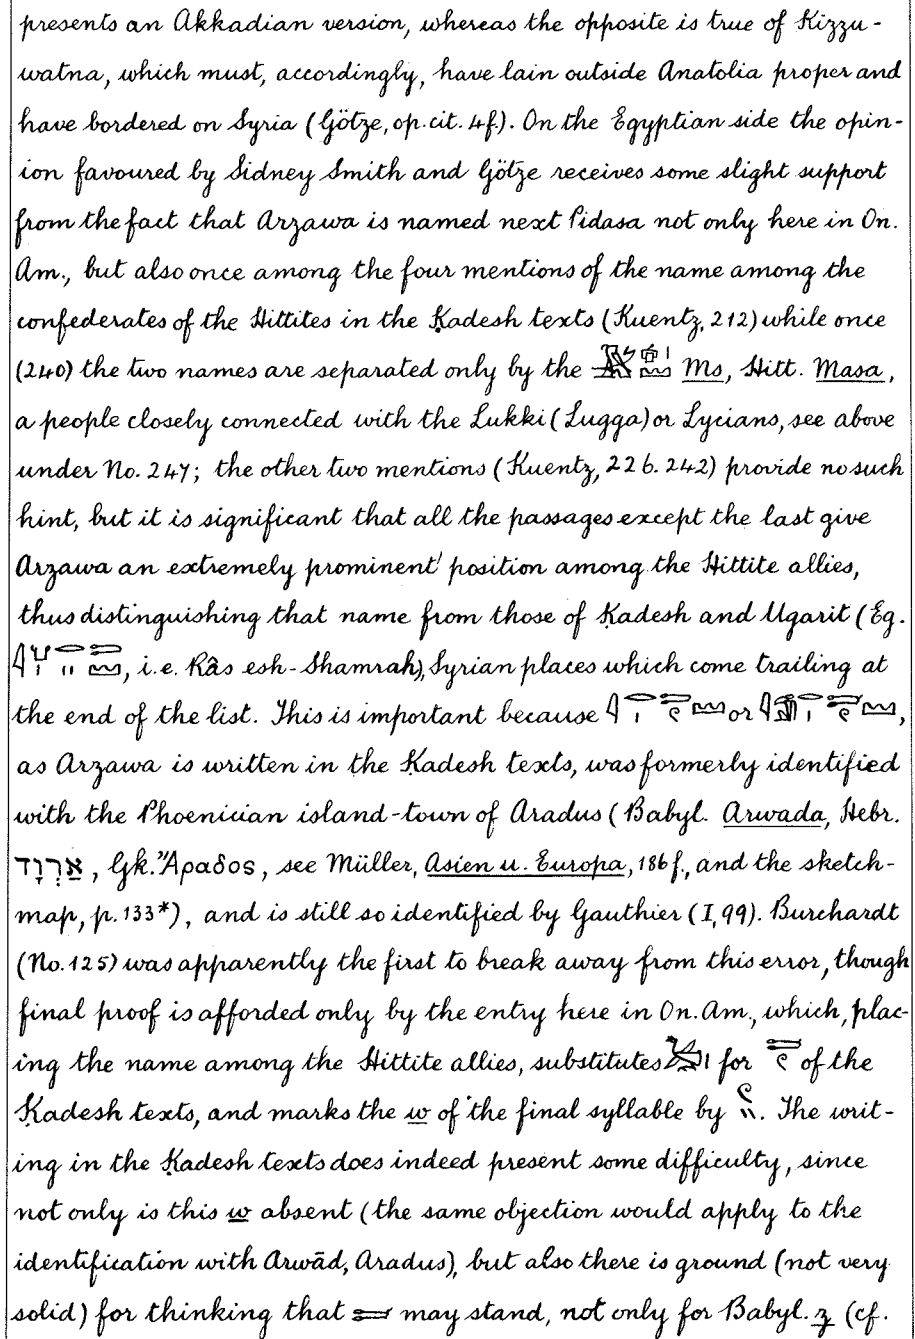 presents an Akkadian version, whereas the opposite is true of Kizzu-
watna, which must, accordingly, have lain outside Anatolia proper and
have bordered on Syria (Götze, op. cit. 4f.). On the Egyptian side the opin-
ion favoured by Sidney Smith and Götze receives some slight support
from the fact that Arzawa is named next Pidasa not only here in On.
Am., but also once among the four mentions of the name among the
confederates of the Hittites in the Ḳadesh texts (Kuentz, 212) while once
(240) the two names are separated only by the Ms, Hitt. Masa,
a people closely connected with the Lukki (Lugga) or Lycians, see above
under No. 247; the other two mentions (Kuentz, 226. 242) provide no such
hint, but it is significant that all the passages except the last give
Arzawa an extremely prominent position among the Hittite allies,
thus distinguishing that name from those of Ḳadesh and Ugarit (Eg.
, i.e. Râs esh-Shamrah), Syrian places which come trailing at
the end of the list. This is important because or ,
as Arzawa is written in the Ḳadesh texts, was formerly identified
with the Phoenician island-town of Aradus (Babyl. Arwada, Hebr.
אַרְוָד, Gk. Ἄραδος, see Müller, Asien u. Europa, 186f., and the sketch-
map, p. 133*), and is still so identified by Gauthier (I, 99). Burchardt
(No. 125) was apparently the first to break away from this error, though
final proof is afforded only by the entry here in On. Am., which, plac-
ing the name among the Hittite allies, substitutes for of the
Ḳadesh texts, and marks the w of the final syllable by . The writ-
ing in the Ḳadesh texts does indeed present some difficulty, since
not only is this w absent (the same objection would apply to the
identification with Arwād, Aradus), but also there is ground (not very
solid) for thinking that may stand, not only for Babyl. z (cf.